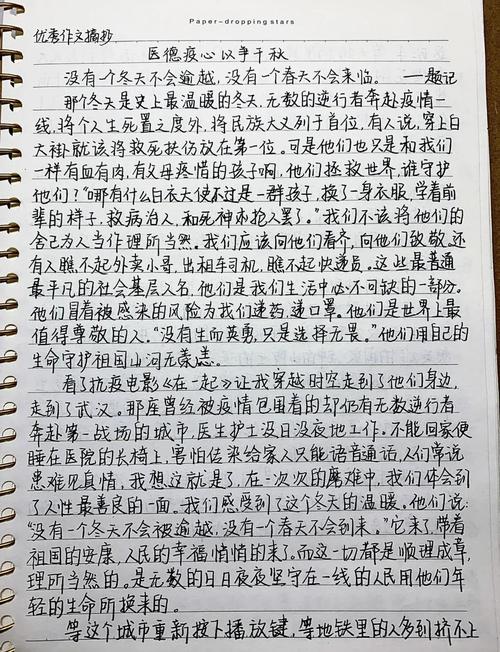 Paper-dropping stars
优秀作文摘抄
医德疫心以争千秋
没有一个冬天不会逾越，没有一个春天不会来临。——题记
那个冬天是史上最温暖的冬天，无数的逆行者奔赴疫情一
线，将个人生死置之度外，将民族大义列于首位，有人说，穿上白
大褂就该将救死扶伤放在第一位。可是他们也只是和我们
一样有血有肉，有父母疼惜的孩子啊，他们拯救世界，谁守护
他们？“哪有什么白衣天使不过是一群孩子，换了一身衣服，学着前
辈的样子，救病治人，和死神抢人罢了。”我们不该将他们的
舍己为人当作理所当然。我们应该向他们看齐，向他们致敬。还
有人瞧不起外卖小哥，出租车司机，瞧不起快递员。这些最普通
最平凡的社会基层人名，他们是我们生活中必不可缺的一部分。
他们冒着被感染的风险为我们递药，递口罩。他们是世界上最
值得尊敬的人。“没有生而英勇，只是选择无畏。”他们用自己的
生命守护祖国山河无恙。
看了抗疫电影《在一起》让我穿越时空走到了他们身边，
走到了武汉。那座曾经被疫情包围着的却仍有无数逆行者
奔赴第一战场的城市，医生护士没日没夜地工作。不能回家便
睡在医院的长椅上，害怕传染给家人只能语音通话，人们常说
患难见真情，我想这就是了，在一次次的磨难中，我们体会到
了人性最善良的一面。我们感受到了这个冬天的温暖。他们说：
“没有一个冬天不会被逾越，没有一个春天不会到来。”它来了，带着
祖国的安康，人民的幸福悄悄的来了。而这一切都是顺理成章，
理所当然的。是无数的日日夜夜坚守在一线的人民用他们年
轻的生命所换来的。
等这个城市重新按下播放键，等地铁里的人多到挤不上